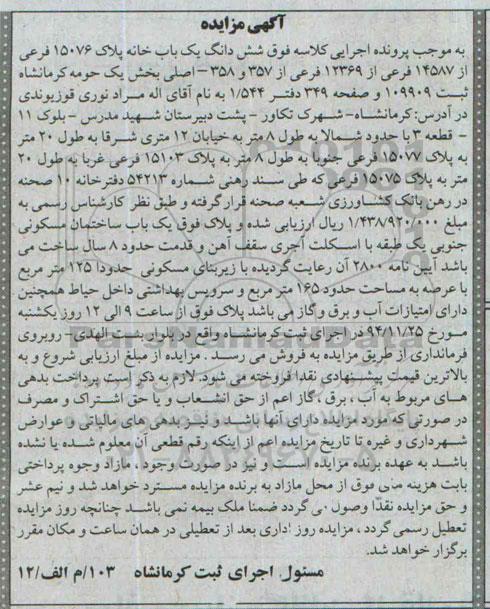 آگهی مزایده
به موجب پرونده اجرایی کلاسه فوق شش دانگ یک باب خانه پلاک ۱۵۰۷۶ فرعی
از ۱۴۵۸۷ فرعی از ۱۲۳۶۹ فرعی از ۳۵۷ و ۳۵۸ – اصلی بخش یک حومه کرمانشاه
ثبت ۱۰۹۹۰۹ و صفحه ۳۴۹ دفتر ۱/۵۴۴ به نام آقای اله مراد نوری قوزیوندی
در آدرس: کرمانشاه– شهرک تکاور – پشت دبیرستان شهید مدرس – بلوک ۱۱
– قطعه ۳ با حدود شمالا به طول ۸ متر به خیابان ۱۲ متری شرقا به طول ۲۰ متر
به پلاک ۱۵۰۷۷ فرعی جنوبا به طول ۸ متر به پلاک ۱۵۱۰۳ فرعی غربا به طول ۲۰
متر به پلاک ۱۵۰۷۵ فرعی که طی سند رهنی شماره ۵۴۲۱۳ دفترخانه ۱۰ صحنه
در رهن بانک کشاورزی شعبه صحنه قرار گرفته و طبق نظر کارشناس رسمی به
مبلغ ۱/۴۳۸/۹۲۰/۰۰۰ ریال ارزیابی شده و پلاک فوق یک باب ساختمان مسکونی
جنوبی یک طبقه با اسکلت آجری سقف آهن و قدمت حدود ۸ سال ساخت می
باشد آیین نامه ۲۸۰۰ آن رعایت گردیده با زیربنای مسکونی حدودا ۱۲۵ متر مربع
با عرصه به مساحت حدود ۱۶۵ متر مربع و سرویس بهداشتی داخل حیاط همچنین
دارای امتیازات آب و برق و گاز می باشد پلاک فوق از ساعت ۹ الی ۱۲ روز یکشنبه
مورخ ۹۴/۱۱/۲۵ در اجرای ثبت کرمانشاه واقع در بلوار بنت الهدی– روبروی
فرمانداری از طریق مزایده به فروش می رسد . مزایده از مبلغ ارزیابی شروع و به
بالاترین قیمت پیشنهادی نقدا فروخته می شود. لازم به ذکر است پرداخت بدهی
های مربوط به آب ، برق ، گاز اعم از حق انشعاب و یا حق اشتراک و مصرف
در صورتی که مورد مزایده دارای آنها باشد و نیز بدهی های مالیاتی و عوارض
شهرداری و غیره تا تاریخ مزایده اعم از اینکه رقم قطعی آن معلوم شده یا نشده
باشد به عهده برنده مزایده است و نیز در صورت وجود ، مازاد وجوه پرداختی
بابت هزینه های فوق از محل مازاد به برنده مزایده مسترد خواهد شد و نیم عشر
و حق مزایده نقدا وصول می گردد ضمنا ملک بیمه نمی باشد چنانچه روز مزایده
تعطیل رسمی گردد ، مزایده روز اداری بعد از تعطیلی در همان ساعت و مکان مقرر
برگزار خواهد شد.
مسئول اجرای ثبت کرمانشاه ۱۰۳/م الف/۱۲